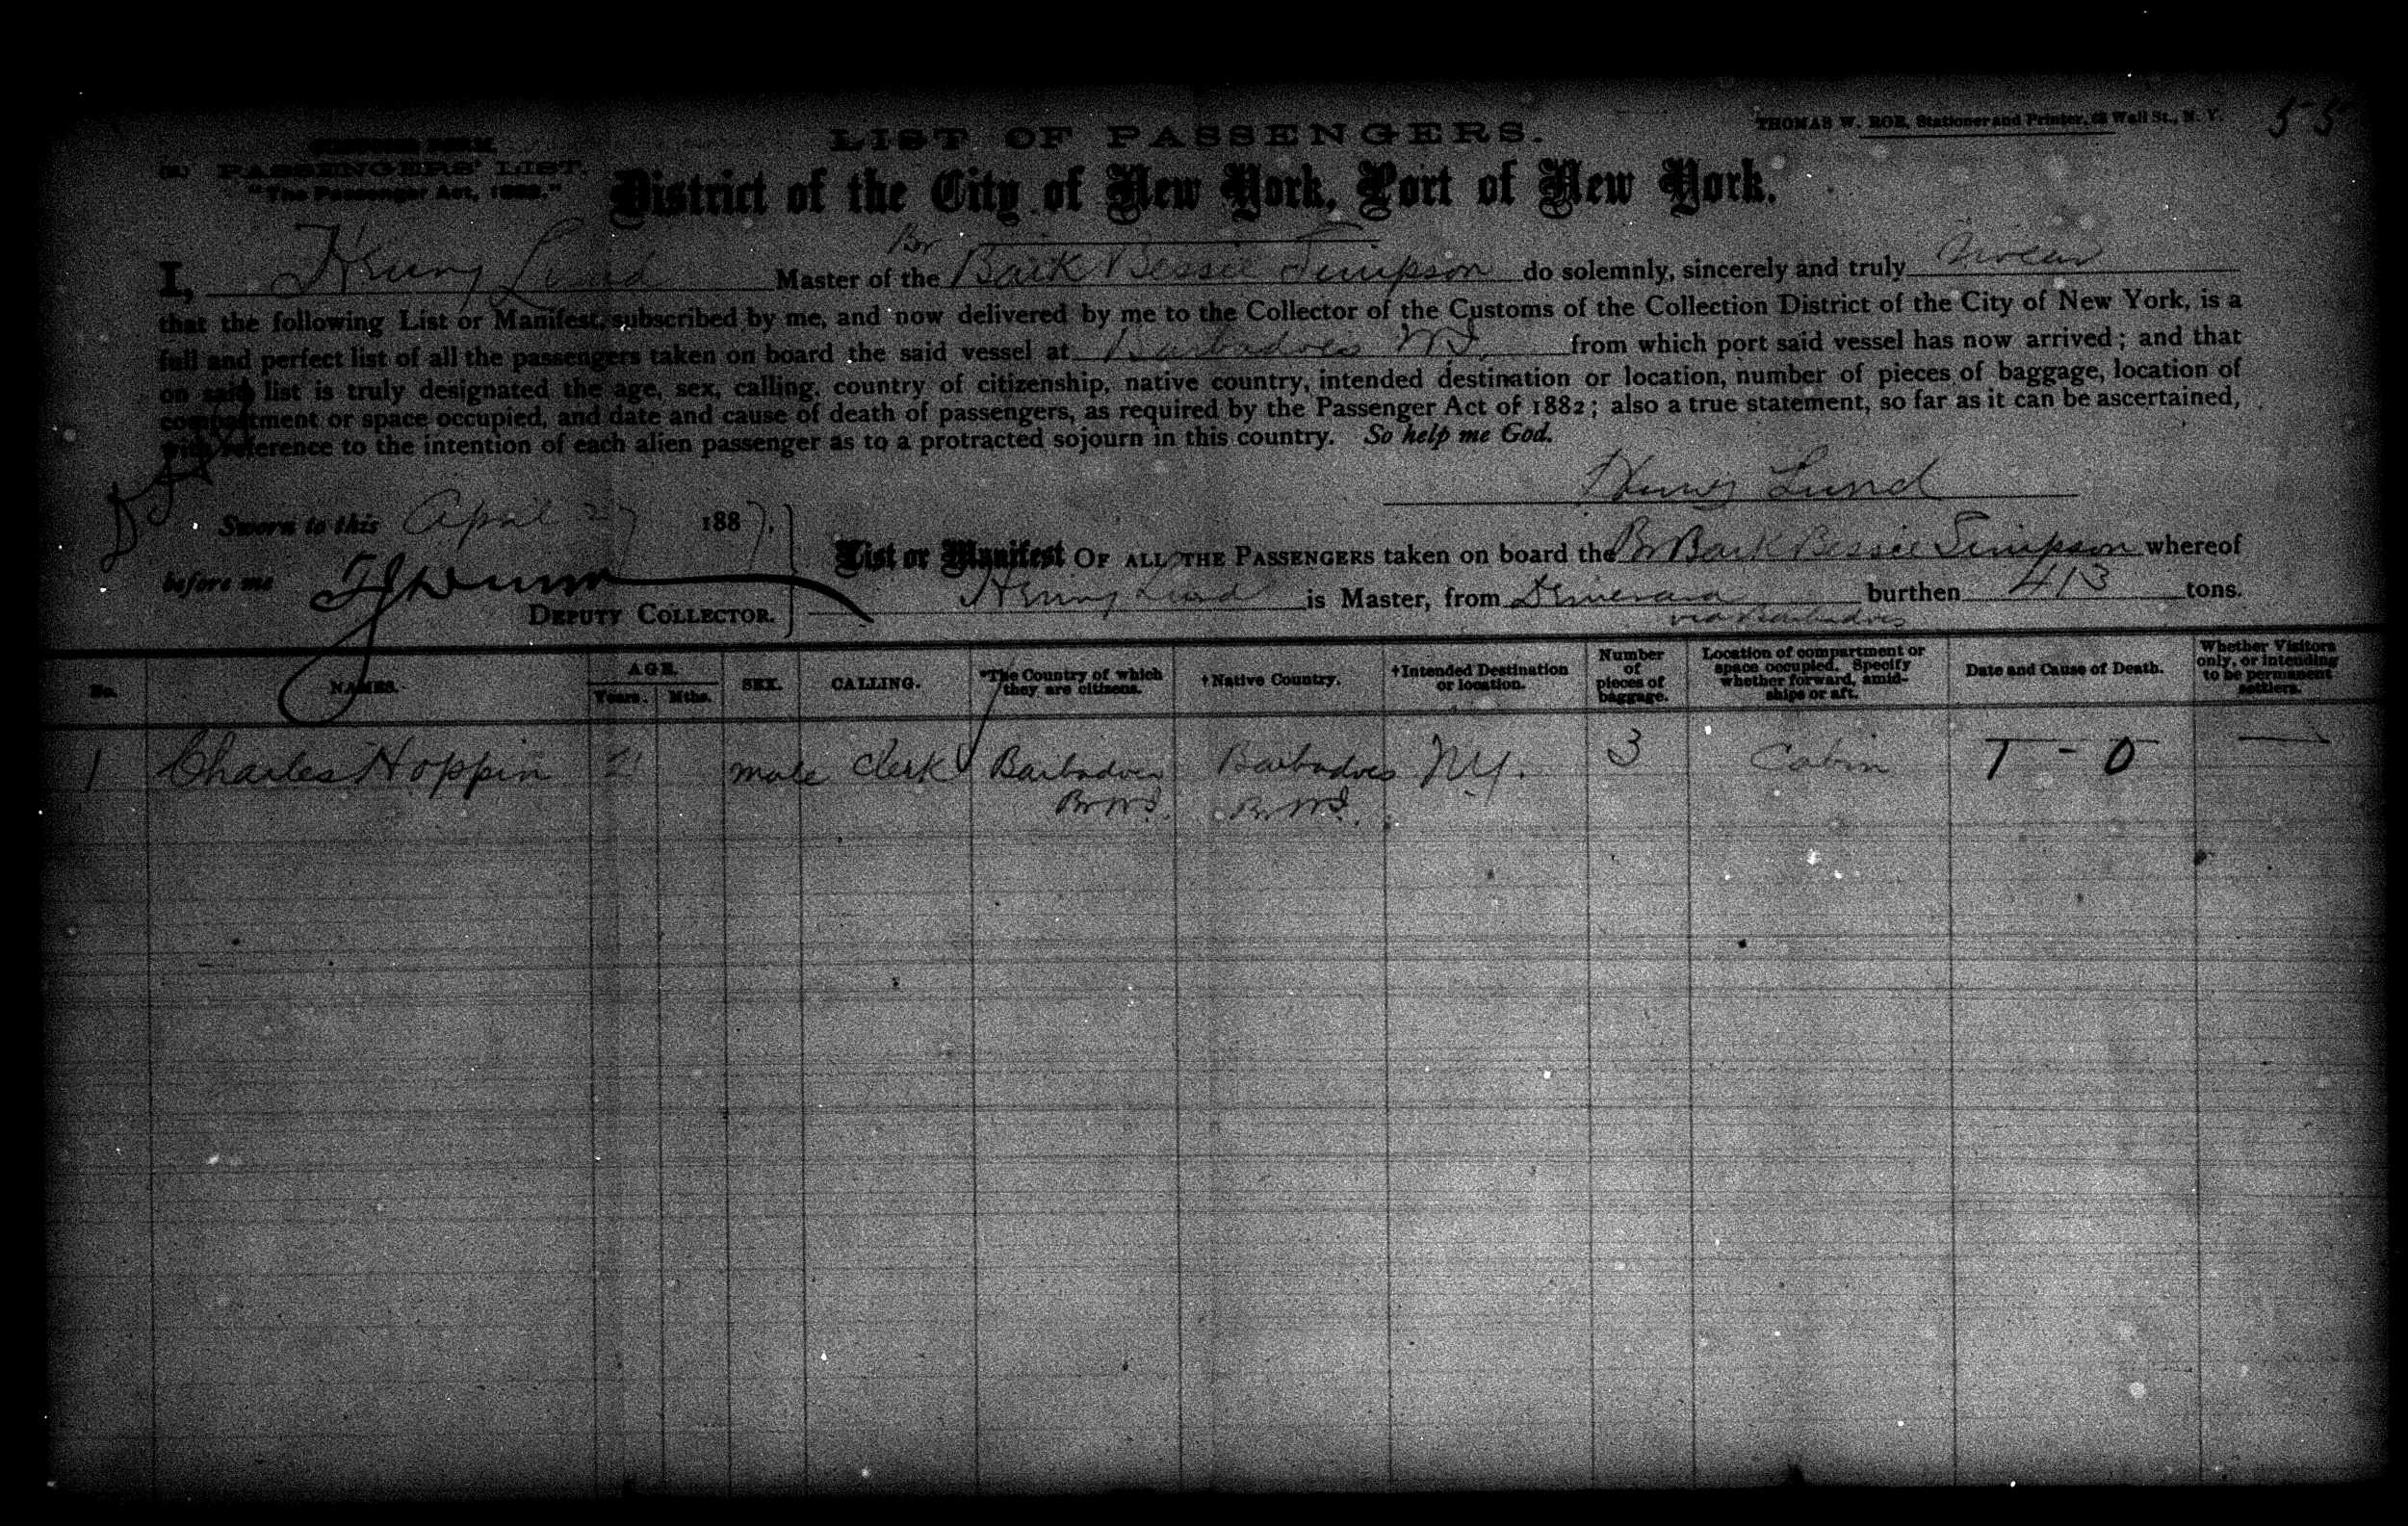 55
THOMAS W. ROE, Stationer and Printer, Wall St., N. Y.
LIST OF PASSENGERS.
PASSENGERS' LIST.
"The Passenger Act, 1882."
District of the City of New York, Port of New York.
I, Henry Lund Master of the Br Bark Bessie Simpson do solemnly, sincerely and truly swear
that the following List or Manifest, subscribed by me, and now delivered by me to the Collector of the Customs of the Collection District of the City of New York, is a
full and perfect list of all the passengers taken on board the said vessel at Barbadoes W I. from which port said vessel has now arrived; and that
on said list is truly designated the age, sex, calling, country of citizenship, native country, intended destination or location, number of pieces of baggage, location of
compartment or space occupied, and date and cause of death of passengers, as required by the Passenger Act of 1882; also a true statement, so far as it can be ascertained,
with reference to the intention of each alien passenger as to a protracted sojourn in this country. So help me God.
Henry Lund
Sworn to this April 27 1887.
before me
DEPUTY COLLECTOR.
List or Manifest OF ALL THE PASSENGERS taken on board the Br Bark Bessie Simpson whereof
Henry Lund is Master, from Demerara burthen 413 tons.
via Barbadoes
No. NAMES. AGE. Years. Mths. SEX. CALLING. *The Country of which they are citizens. †Native Country. †Intended Destination or location. Number of pieces of baggage. Location of compartment or space occupied. Specify whether forward, amidships or aft. Date and Cause of Death. Whether Visitors only, or intending to be permanent settlers.
1 Charles Hoppin 21 male Clerk Barbadoes Barbadoes N.Y. 3 Cabin T - O —
Br W I. Br W I.